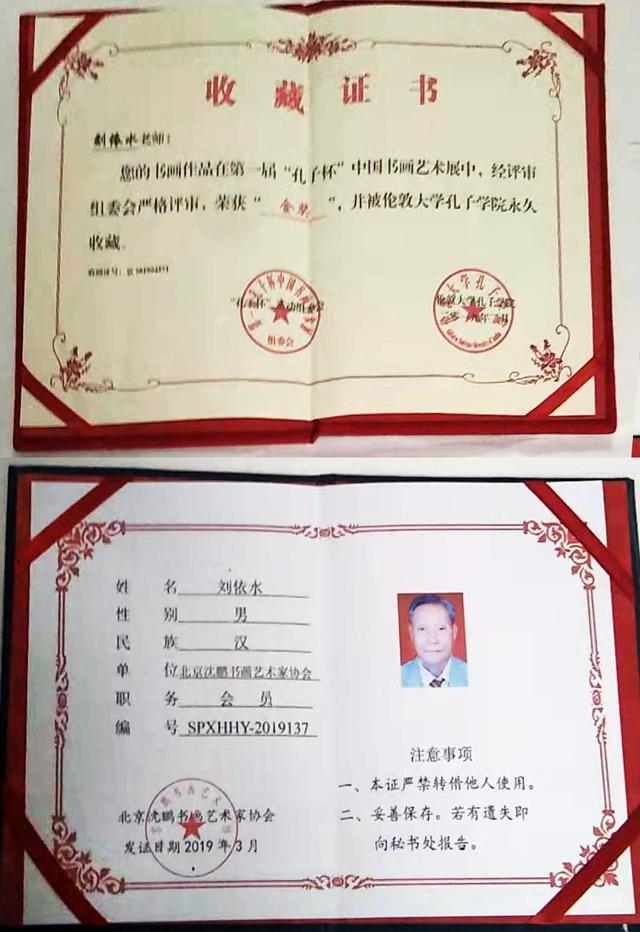 收藏证书
刘依水老师：
您的书画作品在第一届“孔子杯”中国书画艺术展中，经评审
组委会严格评审，荣获“金奖”，并被伦敦大学孔子学院永久
收藏。
“孔子杯”活动组委会
组委会
伦敦大学孔子学院
姓 名 刘依水
性 别 男
民 族 汉
单 位 北京沈鹏书画艺术家协会
职 务 会 员
编 号 SPXHHY-2019137
北京沈鹏书画艺术家协会
发证日期2019年3月
注意事项
一、本证严禁转借他人使用。
二、妥善保存。若有遗失即
向秘书处报告。